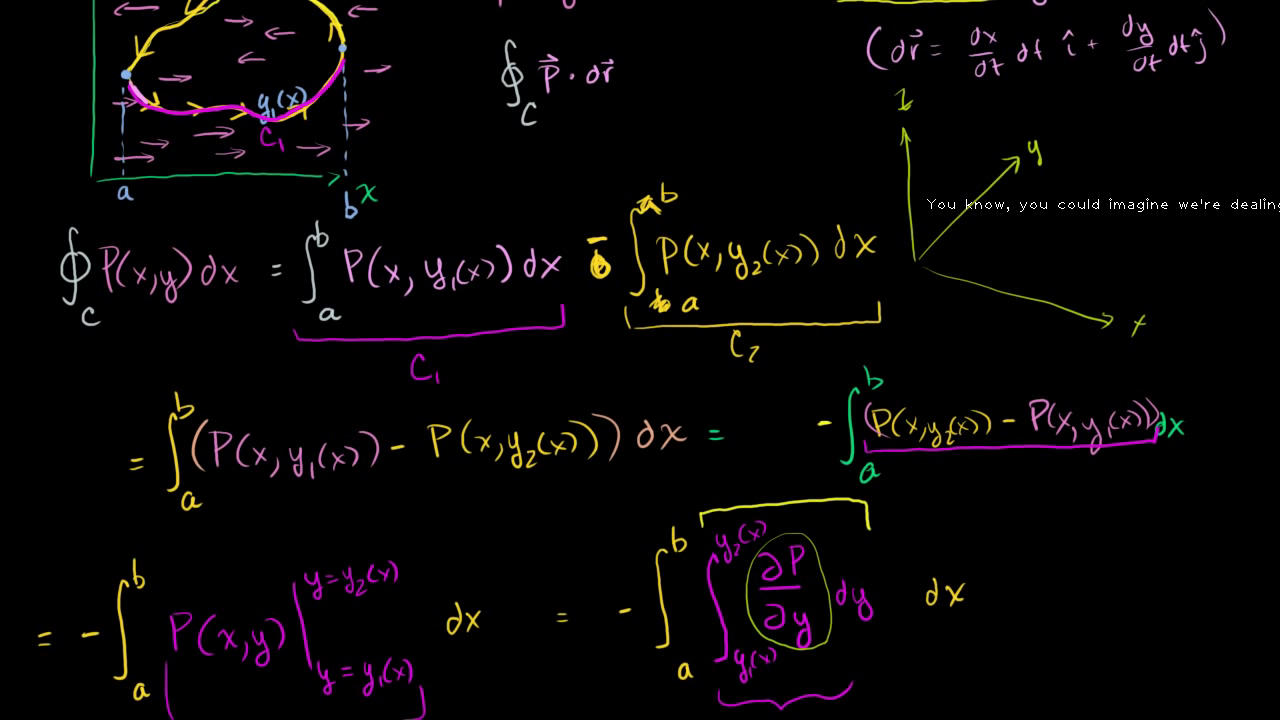 y₁(x)
C₁
a
b
x
∮_C P⃗ · dr⃗
(dr⃗ = dx/dt dt î + dy/dt dt ĵ)
z
y
x
You know, you could imagine we're dealing
∮_C P(x,y) dx = ∫_a^b P(x, y₁(x)) dx - ∫_a^b P(x, y₂(x)) dx
C₁
C₂
= ∫_a^b (P(x, y₁(x)) - P(x, y₂(x))) dx = - ∫_a^b (P(x, y₂(x)) - P(x, y₁(x))) dx
= - ∫_a^b P(x,y) |_{y = y₁(x)}^{y = y₂(x)} dx = - ∫_a^b ∫_{y₁(x)}^{y₂(x)} ∂P/∂y dy dx